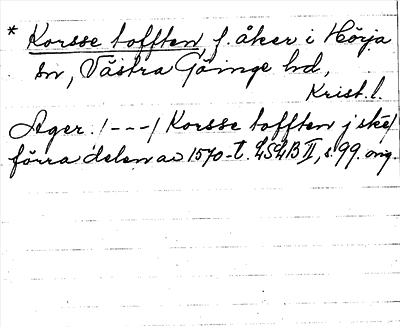 * Korsse tofften f. åker i Hörja
sn, Västra Göinge hd,
Krist. l.
Ager. /---/ Korsse tofften j ske/
förra delen av 1570-t. LSLB II, s. 99. orig.